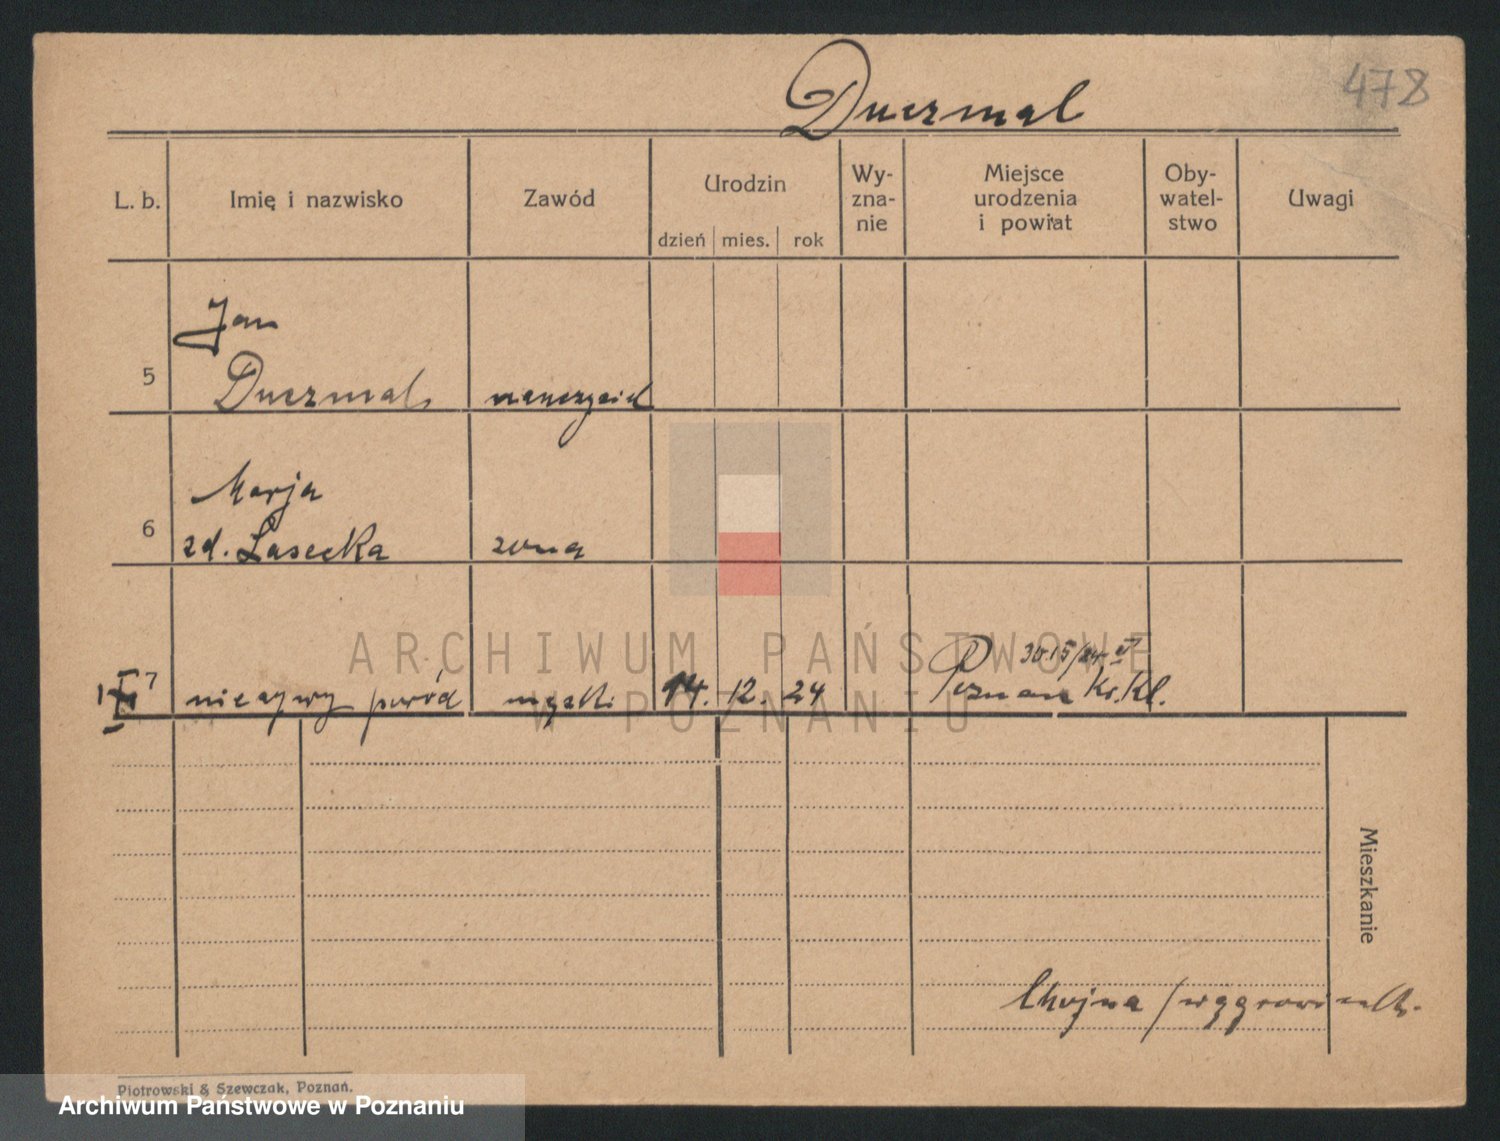 478
Duczmal
L. b.
Imię i nazwisko
Zawód
Urodzin
dzień mies. rok
Wy-
zna-
nie
Miejsce
urodzenia
i powiat
Oby-
watel-
stwo
Uwagi
Jan
5 Duczmal nauczyciel
Marja
6 zd. Łasecka żona
7 nieżywy poród męski 14. 12. 24 Poznań Kr. Kl.
Mieszkanie
Chojna / wągrowiecki.
Piotrowski & Szewczak, Poznań.
ARCHIWUM PAŃSTWOWE
W POZNANIU
Archiwum Państwowe w Poznaniu